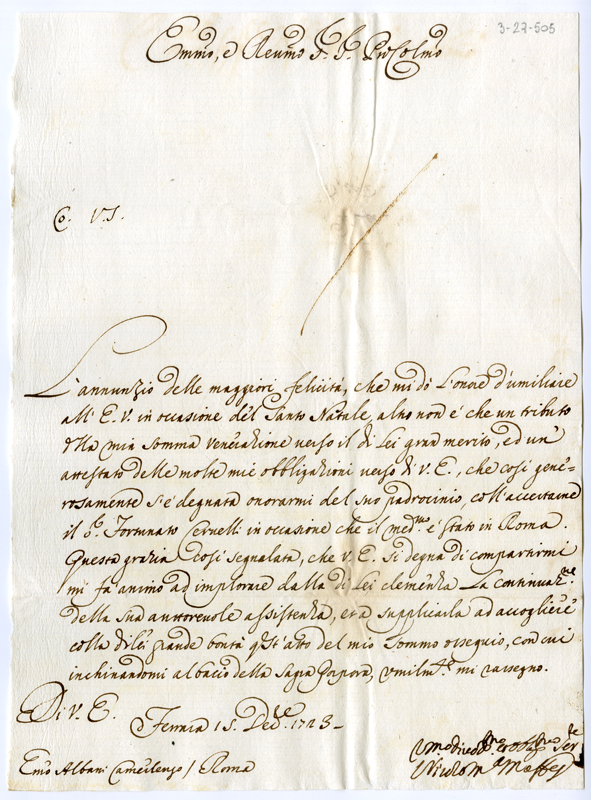 3-27-505
Emmo, e Revmo Sr. Sr. Pro Colmo
Co. V.S.
L'annunzio delle maggiori felicità, che mi dò l'onore d'umiliare
all' E.V. in occasione del Santo Natale, altro non è che un tributo
della mia somma venerazione verso il di Lei gran merito, ed un'
attestato delle molte mie obbligazioni verso di V.E., che così gene-
rosamente s'è degnata onorarmi del suo padrocinio, coll'accertarne
il Sr. Fortunato Cervelli in occasione che il medmo è stato in Roma.
Questa grazia così segnalata, che V.E. si degna di compartirmi
mi fà animo ad implorare dalla di Lei clemenza la continuazne
della sua auttorevole assistenza, e a supplicarla ad accogliere
colla di lei grande bontà quest'atto del mio sommo ossequio, con cui
inchinandomi al bacio della Sagra Porpora, umilmte mi rassegno.
Di V. E.
Ferrara 15. Dece 1723-
Emo Albani Camerlengo / Roma
Umo Divmo Obbmo Serre